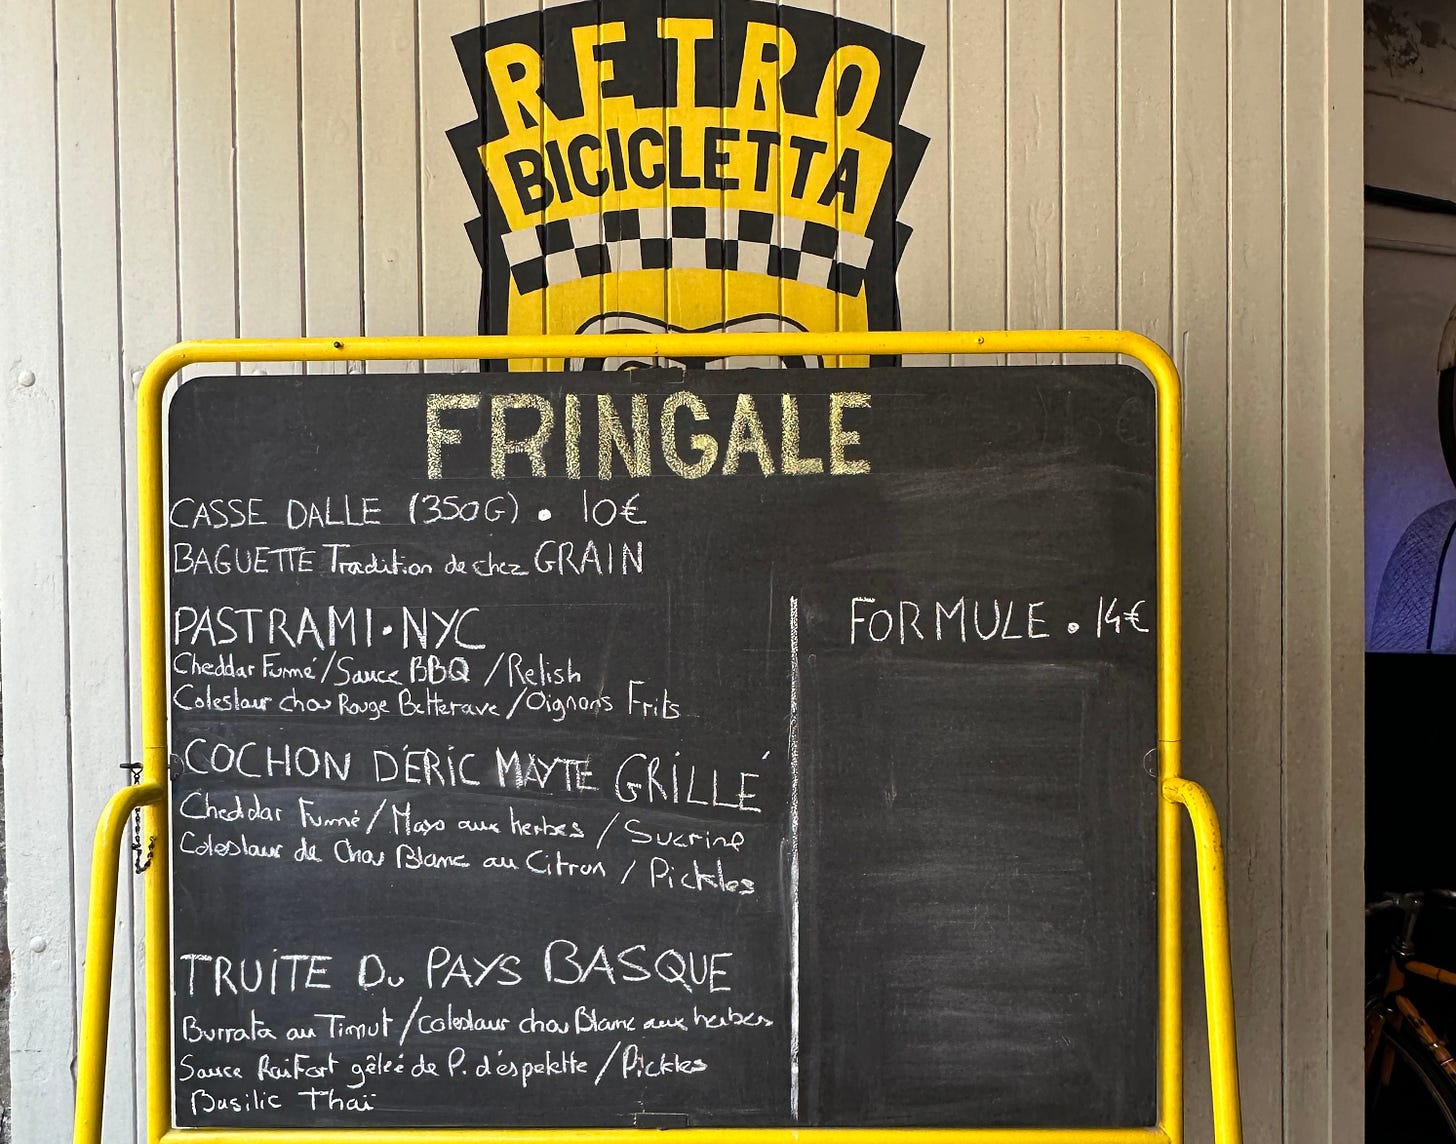 RETRO
BICICLETTA
FRINGALE
CASSE DALLE (350G) • 10€
BAGUETTE Tradition de chez GRAIN
PASTRAMI • NYC
Cheddar Fumé / Sauce BBQ / Relish
Coleslaw chou Rouge Betterave / Oignons Frits
FORMULE • 14€
COCHON D'ÉRIC MAYTE GRILLÉ
Cheddar Fumé / Mayo aux herbes / Sucrine
Coleslaw de Chou Blanc au Citron / Pickles
TRUITE Du PAYS BASQUE
Burrata au Timut / Coleslaw chou Blanc aux herbes
Sauce Raifort gêlée de P. d'éspelette / Pickles
Basilic Thaï